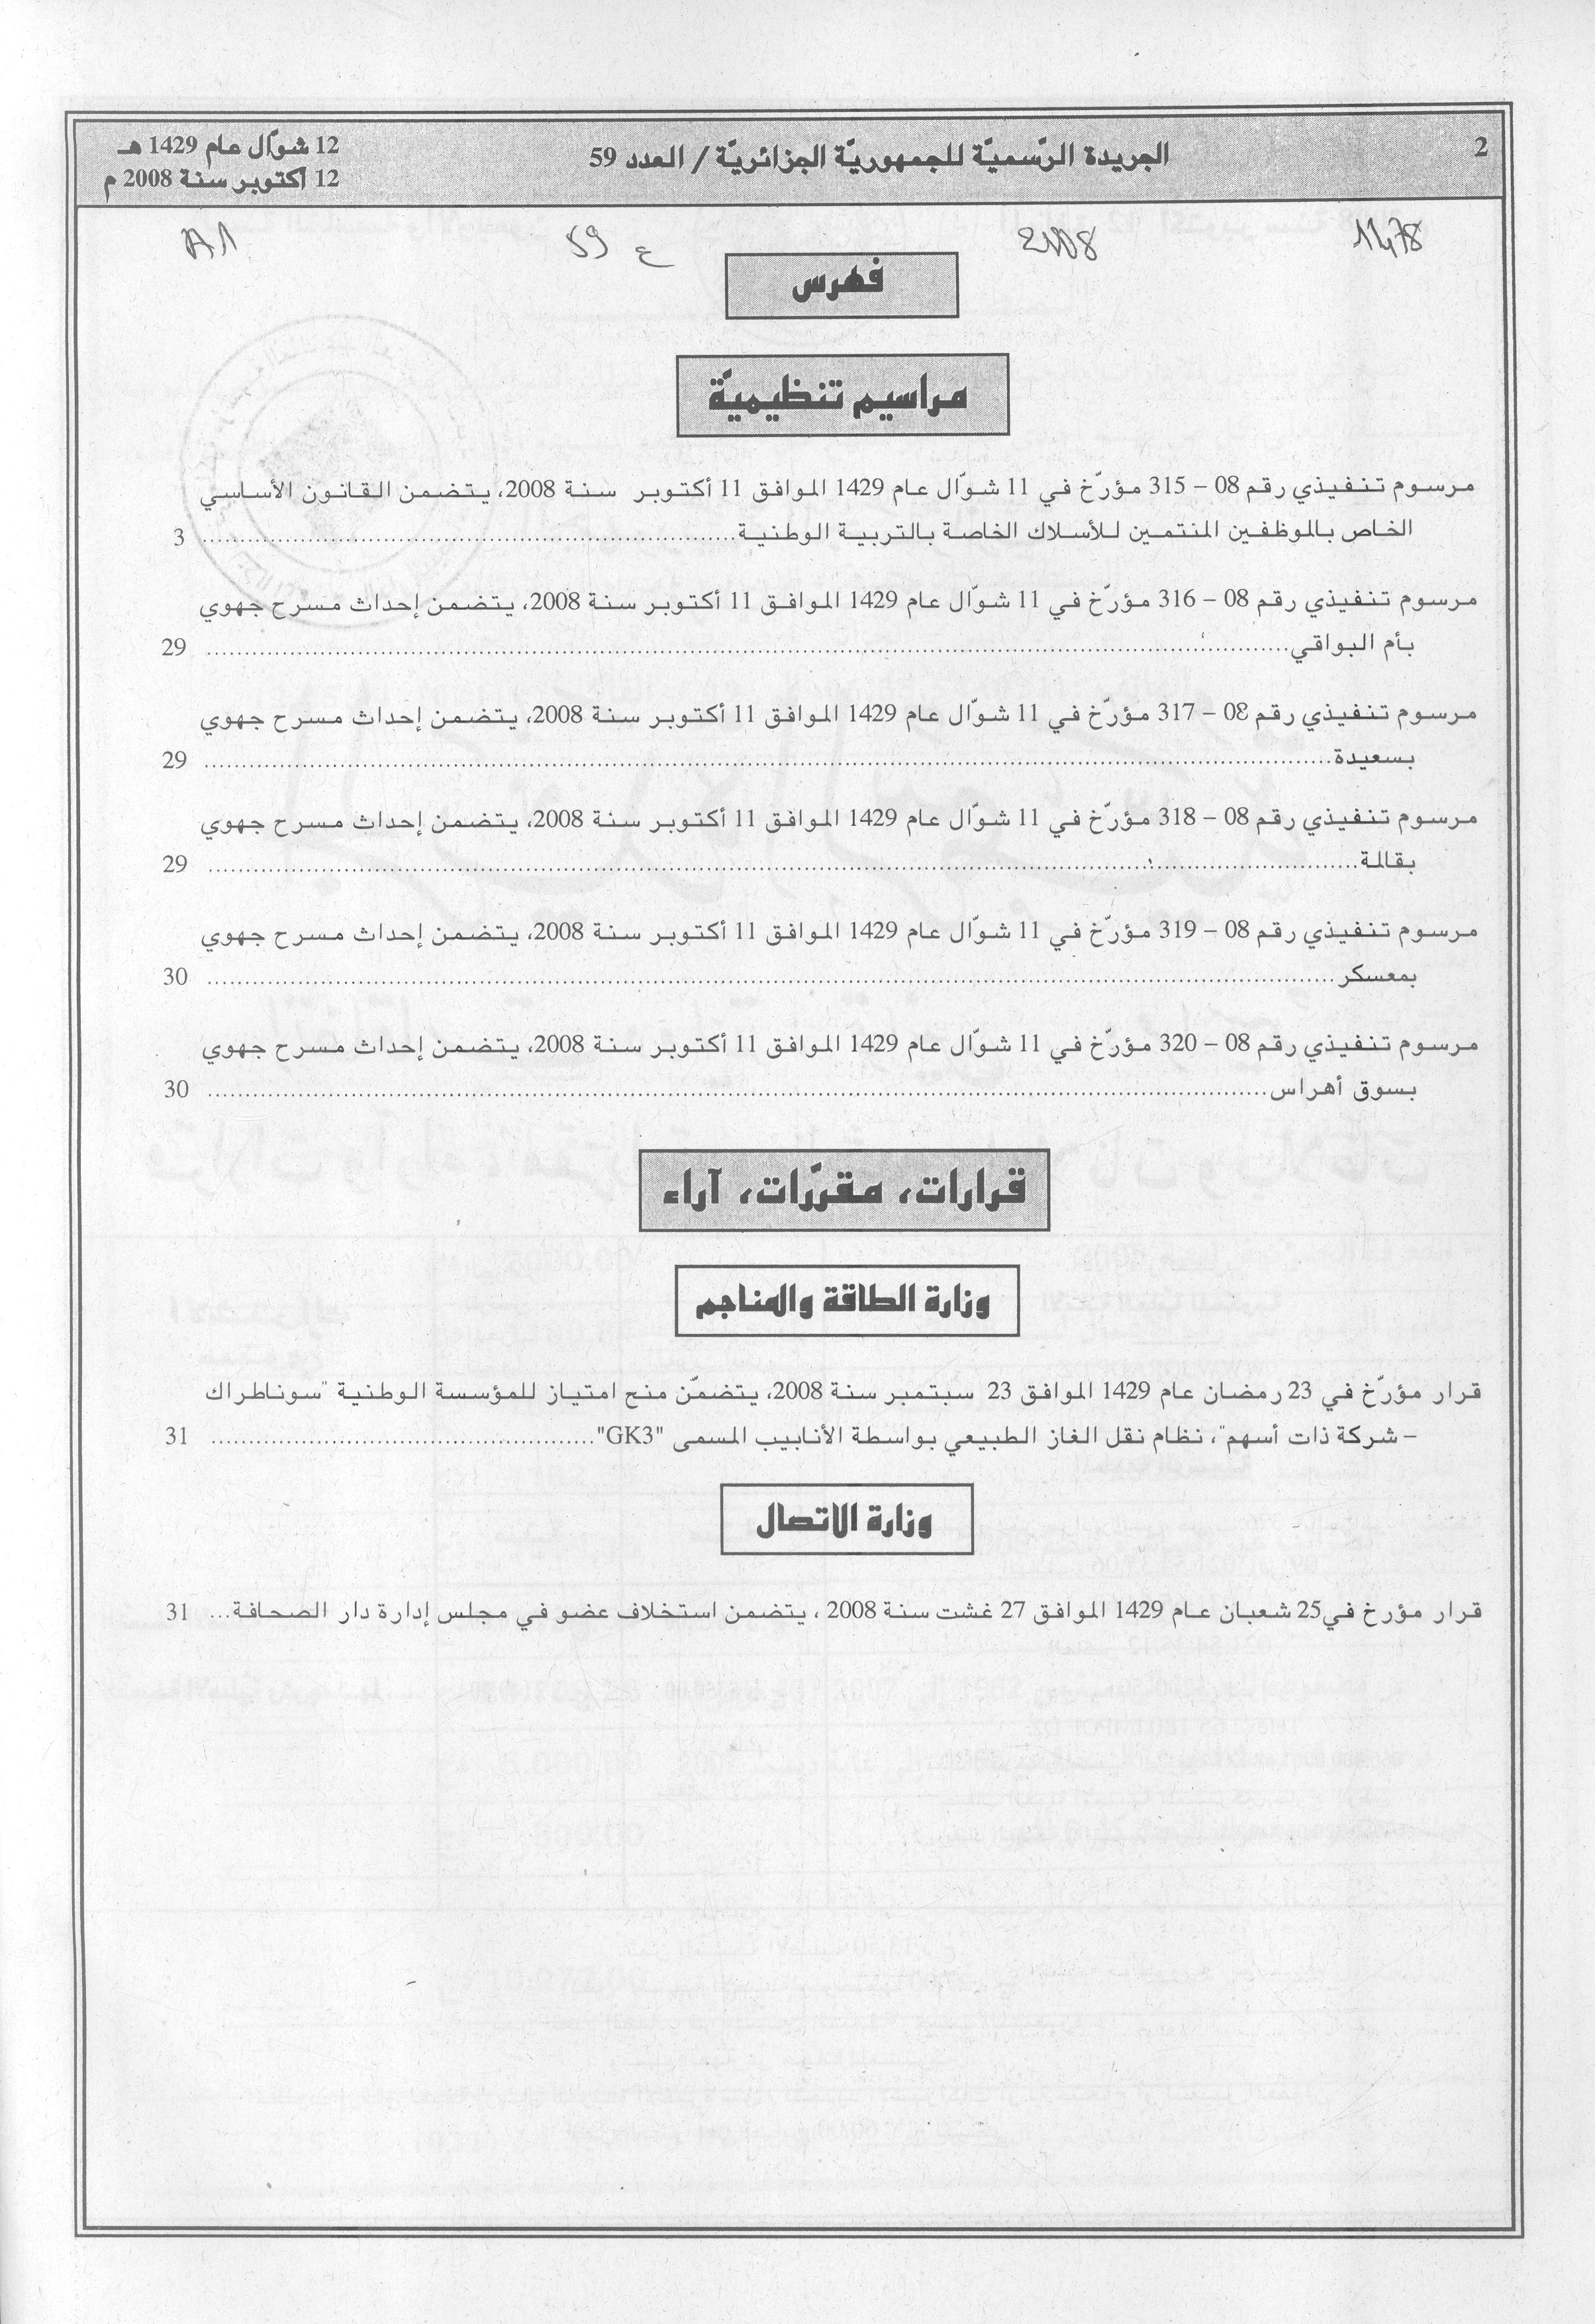 2
الجريدة الرّسميّة للجمهوريّة الجزائريّة / العدد 59
12 شوّال عام 1429 هـ
12 أكتوبر سنة 2008 م
1478 2008 ع 59 A1
فهرس
مراسيم تنظيميّة
مرسوم تنفيذي رقم 08 – 315 مؤرّخ في 11 شوّال عام 1429 الموافق 11 أكتوبر سنة 2008، يتضمن القانون الأساسي
الخاص بالموظفين المنتمين للأسلاك الخاصة بالتربية الوطنية........ 3
مرسوم تنفيذي رقم 08 – 316 مؤرّخ في 11 شوّال عام 1429 الموافق 11 أكتوبر سنة 2008، يتضمن إحداث مسرح جهوي
بأم البواقي........ 29
مرسوم تنفيذي رقم 08 – 317 مؤرّخ في 11 شوّال عام 1429 الموافق 11 أكتوبر سنة 2008، يتضمن إحداث مسرح جهوي
بسعيدة........ 29
مرسوم تنفيذي رقم 08 – 318 مؤرّخ في 11 شوّال عام 1429 الموافق 11 أكتوبر سنة 2008، يتضمن إحداث مسرح جهوي
بقالمة........ 29
مرسوم تنفيذي رقم 08 – 319 مؤرّخ في 11 شوّال عام 1429 الموافق 11 أكتوبر سنة 2008، يتضمن إحداث مسرح جهوي
بمعسكر........ 30
مرسوم تنفيذي رقم 08 – 320 مؤرّخ في 11 شوّال عام 1429 الموافق 11 أكتوبر سنة 2008، يتضمن إحداث مسرح جهوي
بسوق أهراس........ 30
قرارات، مقرّرات، آراء
وزارة الطاقة والمناجم
قرار مؤرّخ في 23 رمضان عام 1429 الموافق 23 سبتمبر سنة 2008، يتضمّن منح امتياز للمؤسسة الوطنية "سوناطراك
– شركة ذات أسهم"، نظام نقل الغاز الطبيعي بواسطة الأنابيب المسمى "GK3"........ 31
وزارة الاتصال
قرار مؤرخ في25 شعبان عام 1429 الموافق 27 غشت سنة 2008 ، يتضمن استخلاف عضو في مجلس إدارة دار الصحافة... 31